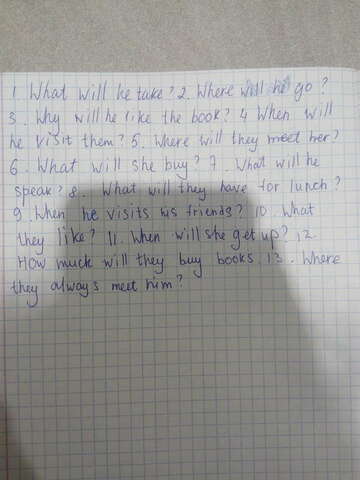 1. What will he take? 2. Where will he go?
3. Why will he like the book? 4 When will
he visit them? 5. Where will they meet her?
6. What will she buy? 7. What will he
speak? 8. What will they have for lunch?
9. When he visits his friends? 10. What
they like? 11. When will she get up? 12.
How much will they buy books. 13. Where
they always meet him?